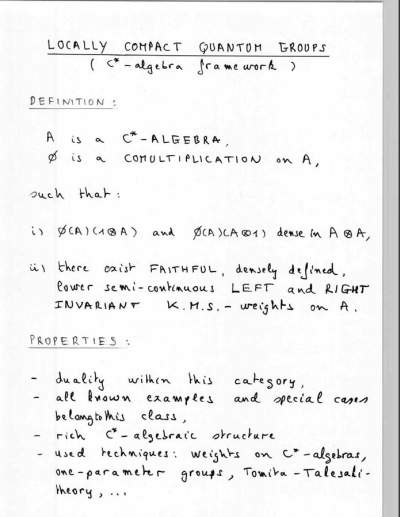 LOCALLY COMPACT QUANTUM GROUPS
( C*-algebra framework )
DEFINITION :
A is a C*-ALGEBRA,
ø is a COMULTIPLICATION on A,
such that :
i) ø(A)(1⊗A) and ø(A)(A⊗1) dense in A⊗A,
ii) there exist FAITHFUL, densely defined,
lower semi-continuous LEFT and RIGHT
INVARIANT K.M.S.-weights on A.
PROPERTIES :
- duality within this category,
- all known examples and special cases
belong to this class,
- rich C*-algebraic structure
- used techniques: weights on C*-algebras,
one-parameter groups, Tomita-Takesaki-
theory, ...